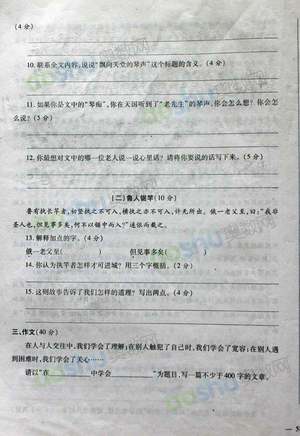 (4 分)
10. 联系全文内容,说说"飘向天堂的琴声"这个标题的含义。(4 分)
11. 如果你是文中的"琴痴",你在天国听到了"老先生"的琴声,你会怎么想?你会怎么说?(5 分)
12. 你最想对文中的哪一位老人说一说心里话?请将你要说的话写下来。(5 分)
(二)鲁人锯竿(10 分)
鲁有执长竿者,初竖执之不可入,横执之亦不可入,计无所出。俄一老父至,曰:"我非
圣人也,但见事多矣,何不以锯中而入?"遂依而截之。
13. 解释加点的字。(4 分)
俄一老父至( ) 但见事多矣( )
14. 你认为执竿者怎样才可进城?用三个字概括。(2 分)
15. 这则故事告诉了我们怎样的道理?写出两点。(4 分)
三、作文(40 分)
在人与人交往中,我们学会了理解;在别人触犯了自己时,我们学会了宽容;在别人遇
到困难时,我们学会了关心……
请以"在 中学会 "为题目,写一篇不少于 400 字的文章。
— 5